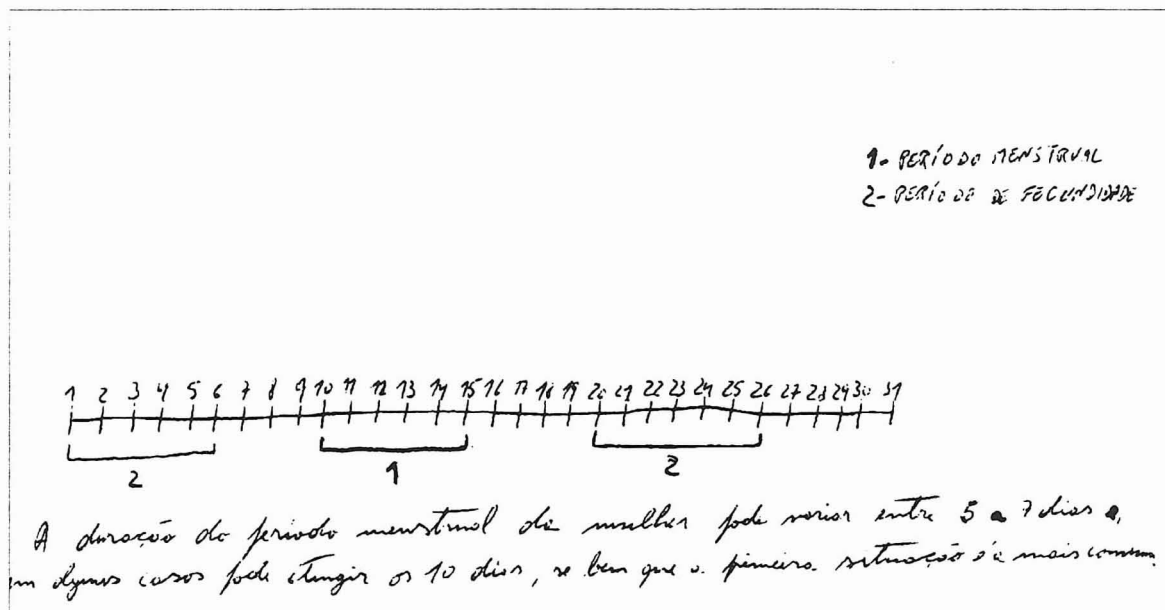 1- PERÍODO MENSTRUAL
2- PERÍODO DE FECUNDIDADE
1 2 3 4 5 6 7 8 9 10 11 12 13 14 15 16 17 18 19 20 21 22 23 24 25 26 27 28 29 30 31
2 1 2
A duração do período menstrual da mulher pode variar entre 5 a 7 dias e,
em alguns casos pode atingir os 10 dias, se bem que a primeira situação é a mais comum.